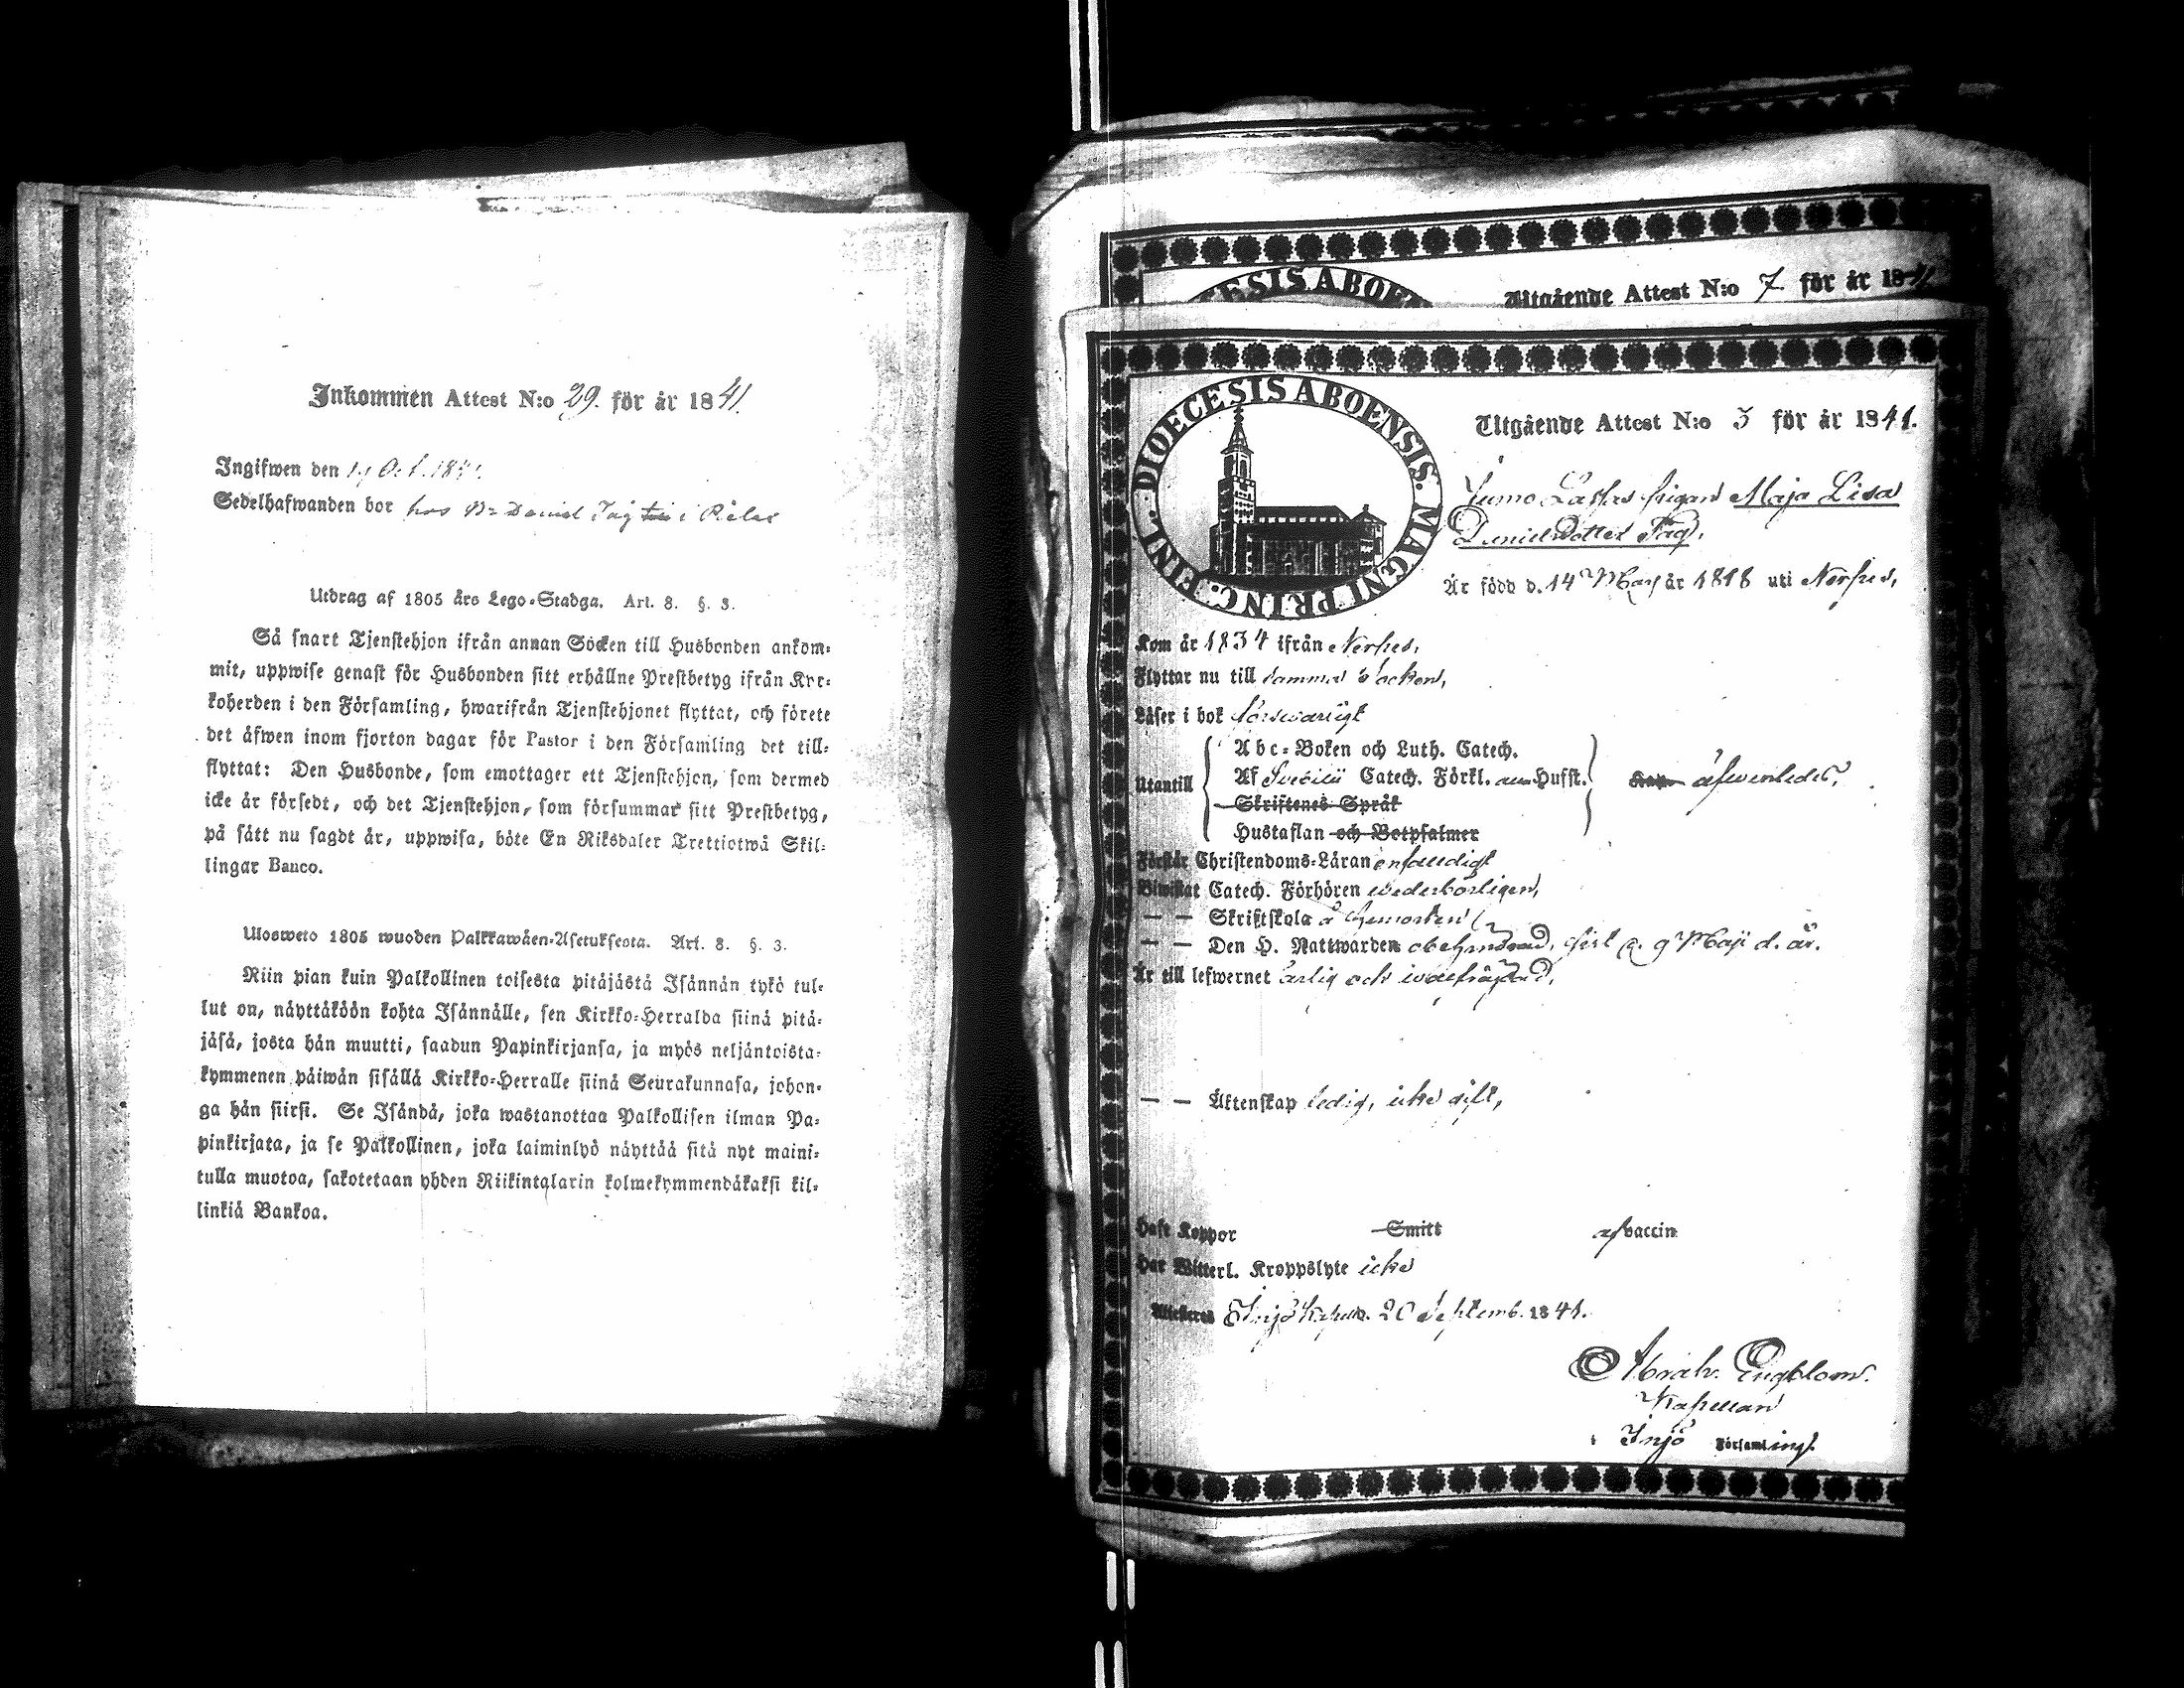 Inkommen Attest N:o 29. för år 1841.
Ingifwen den 19 Oct. 1841.
Sedelhafwanden bor hos Bn Daniel Tag i
Utdrag af 1805 års Lego-Stadga. Art. 8. §. 3.
Så snart Tjenstehjon ifrån annan Socken till Husbonden ankom-
mit, uppwise genast för Husbonden sitt erhållne Prestbetyg ifrån Kyr-
koherden i den Församling, hwarifrån Tjenstehjonet flyttat, och förete
det äfwen inom fjorton dagar för Pastor i den Församling det till-
flyttat: Den Husbonde, som emottager ett Tjenstehjon, som dermed
icke är försedt, och det Tjenstehjon, som försummar sitt Prestbetyg,
på sätt nu sagdt är, uppwisa, böte En Riksdaler Trettiotwå Skil-
lingar Banco.
Ulosweto 1805 wuoden Palkkawäen-Asetuksesta. Art. 8. §. 3.
Niin pian kuin Palkollinen toisesta pitäjästä Isännän tykö tul-
lut on, näyttäköön kohta Isännälle, sen Kirkko-Herralda siinä pitä-
jäsä, josta hän muutti, saadun Papinkirjansa, ja myös neljäntoista-
kymmenen päiwän sisällä Kirkko-Herralle siinä Seurakunnasa, johon-
ga hän siirsi. Se Isändä, joka wastanottaa Palkollisen ilman Pa-
pinkirjata, ja se Palkollinen, joka laiminlyö näyttää sitä nyt maini-
tulla muotoa, sakotetaan yhden Riikintalarin kolmekymmendäkaksi kil-
linkiä Bankoa.
Utgående Attest N:o 7 för år 1841.
DIOECESIS ABOENSIS. MAGNI PRINC. FINL.
Utgående Attest N:o 3 för år 1841.
pigan Maja Lisa
Danielsdotter Tag,
Är född d. 14 Maj år 1818 uti Nerpes,
Kom år 1834 ifrån Nerpes,
Flyttar nu till samma Socken,
Läser i bok försvarligt
Utantill
Abc-Boken och Luth. Catech.
Af Svebilii Catech. Förkl. Husst.
äfwenledes,
Skriftenes Språk
Hustaflan och Botpsalmer
Förstår Christendoms-Läran enfaldigt
Biwistat Catech. Förhören wederbörligen,
— — Skriftskola
— — Den H. Nattwarden obehindrad, sist d. 9 Maji d. år.
Är till lefwernet ärlig och wälfräjdad,
— — Äktenskap ledig, icke gift,
Haft Koppor Smitt af vaccin
Har Witterl. Kroppslyte icke
Attesteres Sinjö Kapell. 20 Septemb. 1841.
Abrah. Engblom.
Kapellan
i Församling.